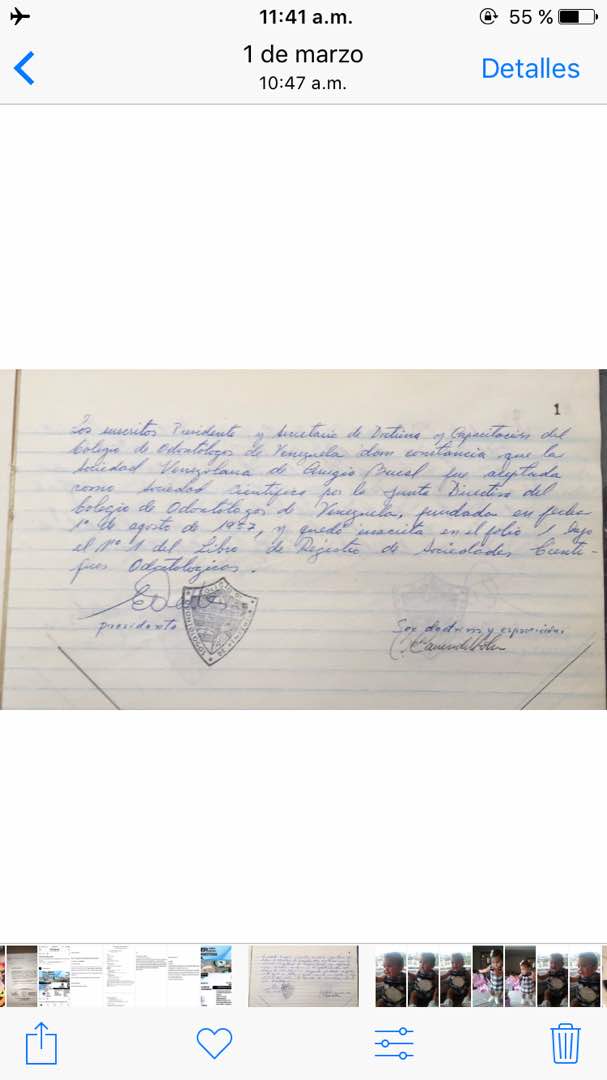 11:41 a.m.
55 %
1 de marzo
10:47 a.m.
Detalles
1
Los suscritos Presidente y Secretario de Doctrina y Capacitación del
Colegio de Odontólogos de Venezuela dan constancia que la
Sociedad Venezolana de Cirugía Bucal fue aceptada
como sociedad científica por la Junta Directiva del
Colegio de Odontólogos de Venezuela, fundada en fecha
1º de agosto de 1957, y quedó inscrita en el folio 1 bajo
el Nº 1 del Libro de Registro de Sociedades Cientí-
ficas Odontológicas.
presidente
Sec doctrina y